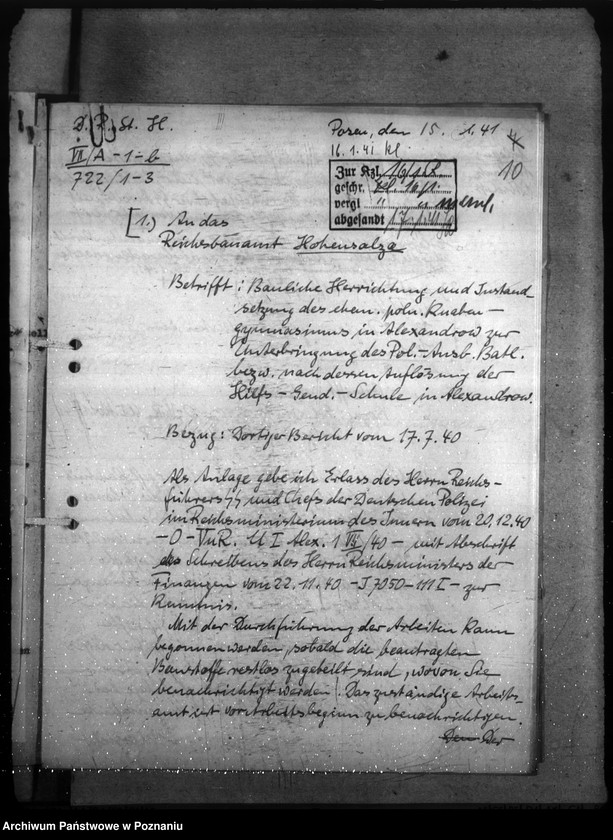 D. R. St. H.
VI/A -1- b
722/1-3
Posen, den 15. 1. 41
16.1.41 Kl.
10
Zur Kzl. 16/1
geschr. 16/1.
vergl. " "
abgesandt
[1.) An das
Reichsbauamt Hohensalza
Betrifft: Bauliche Herrichtung und Instand-
setzung des ehem. poln. Knaben-
gymnasiums in Alexandrow zur
Unterbringung des Pol.-Ausb. Batl.
bezw. nach dessen Auflösung der
Hilfs-Gend.-Schule in Alexandrow.
Bezug: Dortiger Bericht vom 17.7.40
Als Anlage gebe ich Erlass des Herrn Reichs-
führers SS und Chefs der Deutschen Polizei
im Reichsministerium des Innern vom 20.12.40
-O-VuR. U I Alex. 1 /40 - mit Abschrift
des Schreibens des Herrn Reichsministers der
Finanzen vom 22.11.40 -J 7050-111 I- zur
Kenntnis.
Mit der Durchführung der Arbeiten kann
begonnen werden, sobald die beantragten
Baustoffe restlos zugeteilt sind, wovon Sie
benachrichtigt werden. Das zuständige Arbeits-
amt ist vor Arbeitsbeginn zu benachrichtigen.
Den Der
Archiwum Państwowe w Poznaniu